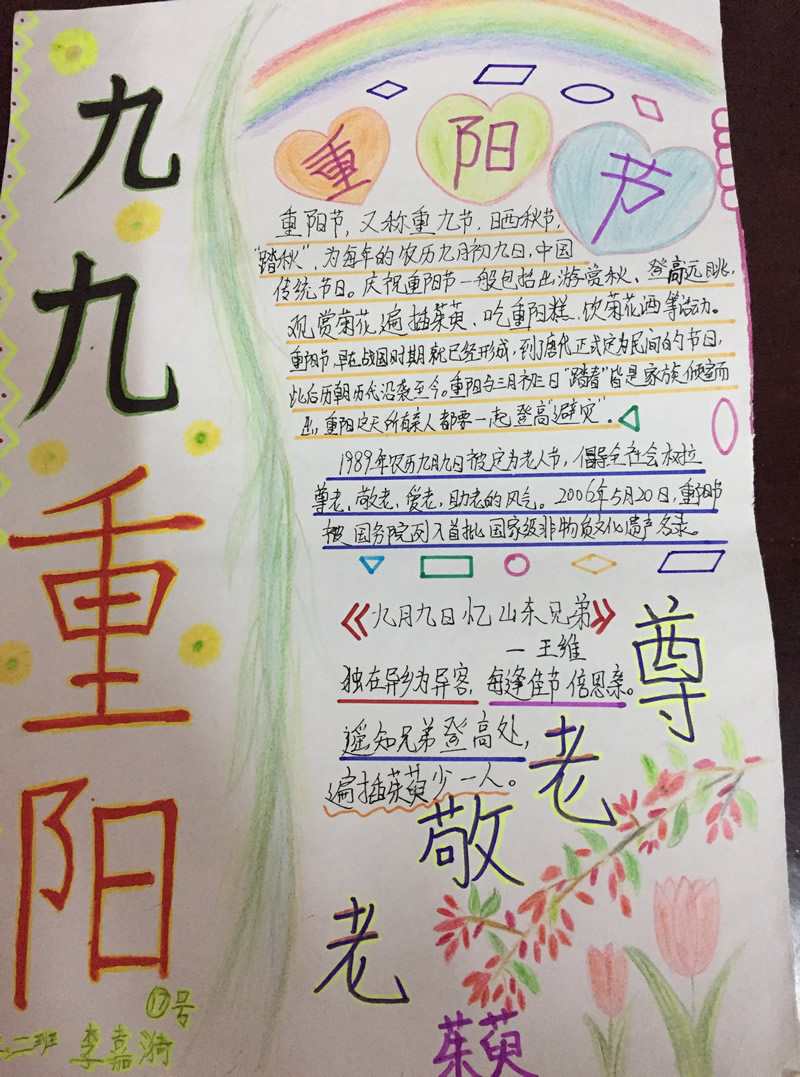 九九重阳
重阳节
重阳节，又称重九节，晒秋节，
“踏秋”，为每年的农历九月初九日，中国
传统节日。庆祝重阳节一般包括出游赏秋、登高远眺，
观赏菊花，遍插茱萸、吃重阳糕、饮菊花酒等活动。
重阳节，早在战国时期就已经形成，到了唐代正式定为民间的节日，
此后历朝历代沿袭至今。重阳与三月初三日“踏春”皆是家族倾室而
出，重阳这天所有亲人都要一起登高“避灾”。
1989年农历九月九日被定为老人节，倡导全社会树立
尊老、敬老、爱老，助老的风气。2006年5月20日，重阳节
被国务院列入首批国家级非物质文化遗产名录。
《九月九日忆山东兄弟》
—王维
独在异乡为异客，每逢佳节倍思亲。
遥知兄弟登高处，
遍插茱萸少一人。
尊老
敬老
茱萸
⑰号
二班 李嘉漪